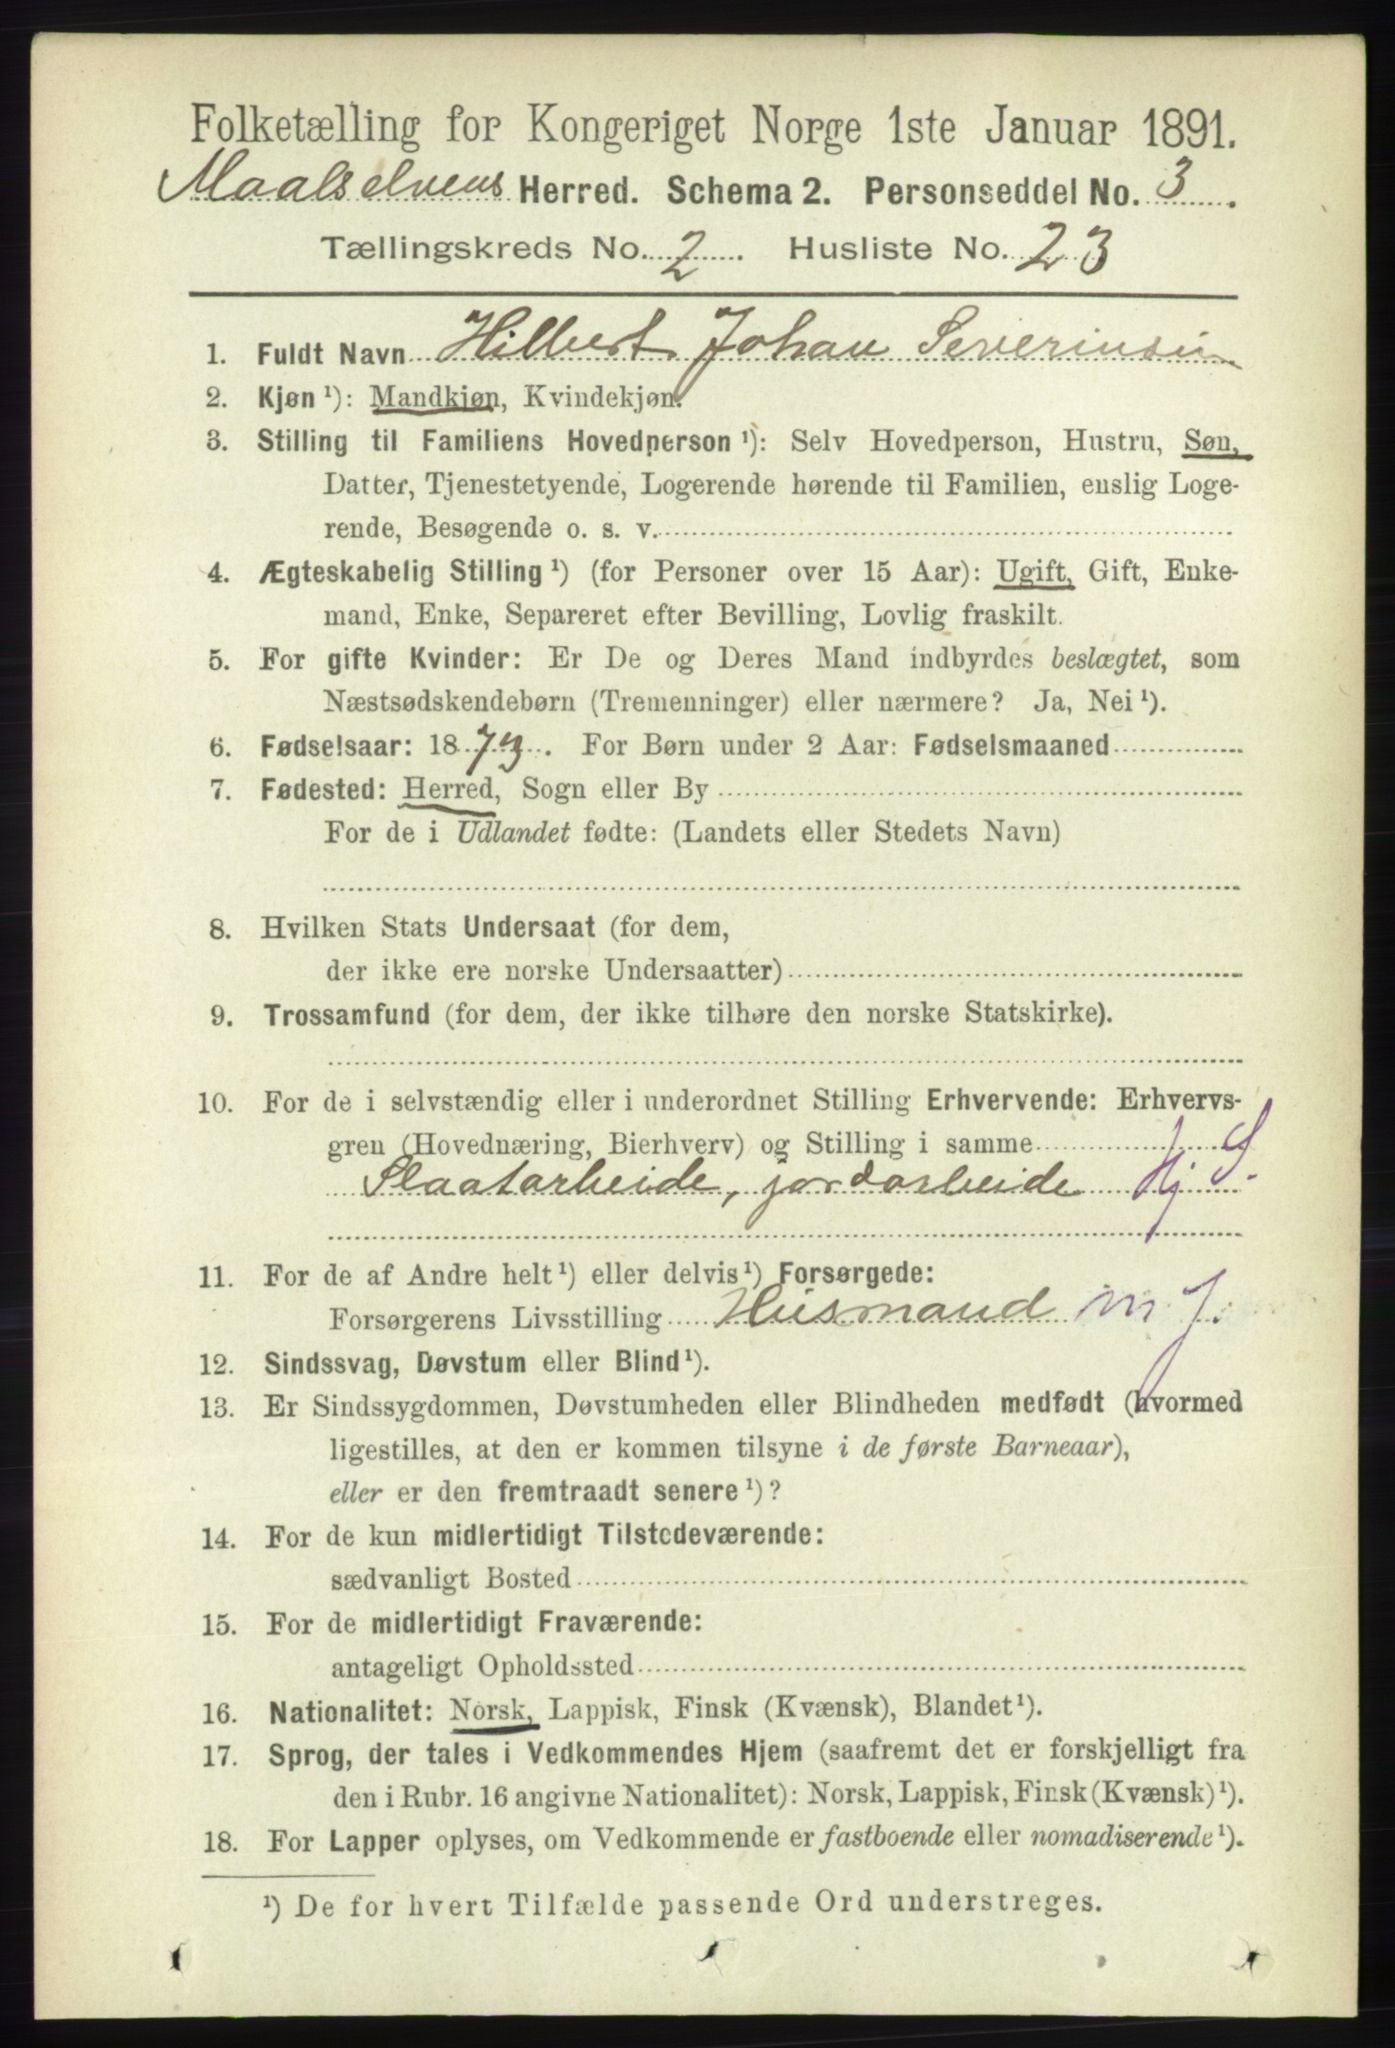 Folketælling for Kongeriget Norge 1ste Januar 1891.
Maalselvens Herred. Schema 2. Personseddel No. 3.
Tællingskreds No. 2. Husliste No. 23
1. Fuldt Navn Hilbert Johan Severinsen
2. Kjøn ¹): Mandkjøn, Kvindekjøn.
3. Stilling til Familiens Hovedperson ¹): Selv Hovedperson, Hustru, Søn,
Datter, Tjenestetyende, Logerende hørende til Familien, enslig Loge-
rende, Besøgende o. s. v.
4. Ægteskabelig Stilling ¹) (for Personer over 15 Aar): Ugift, Gift, Enke-
mand, Enke, Separeret efter Bevilling, Lovlig fraskilt.
5. For gifte Kvinder: Er De og Deres Mand indbyrdes beslægtet, som
Næstsødskendebørn (Tremenninger) eller nærmere? Ja, Nei ¹).
6. Fødselsaar: 1873. For Børn under 2 Aar: Fødselsmaaned
7. Fødested: Herred, Sogn eller By
For de i Udlandet fødte: (Landets eller Stedets Navn)
8. Hvilken Stats Undersaat (for dem,
der ikke ere norske Undersaatter)
9. Trossamfund (for dem, der ikke tilhøre den norske Statskirke).
10. For de i selvstændig eller i underordnet Stilling Erhvervende: Erhvervs-
gren (Hovednæring, Bierhverv) og Stilling i samme
Slaatarbeide, jordarbeide Hj S.
11. For de af Andre helt ¹) eller delvis ¹) Forsørgede:
Forsørgerens Livsstilling Husmand m J.
12. Sindssvag, Døvstum eller Blind ¹).
13. Er Sindssygdommen, Døvstumheden eller Blindheden medfødt (hvormed
ligestilles, at den er kommen tilsyne i de første Barneaar),
eller er den fremtraadt senere ¹)?
14. For de kun midlertidigt Tilstedeværende:
sædvanligt Bosted
15. For de midlertidigt Fraværende:
antageligt Opholdssted
16. Nationalitet: Norsk, Lappisk, Finsk (Kvænsk), Blandet ¹).
17. Sprog, der tales i Vedkommendes Hjem (saafremt det er forskjelligt fra
den i Rubr. 16 angivne Nationalitet): Norsk, Lappisk, Finsk (Kvænsk) ¹).
18. For Lapper oplyses, om Vedkommende er fastboende eller nomadiserende ¹).
¹) De for hvert Tilfælde passende Ord understreges.